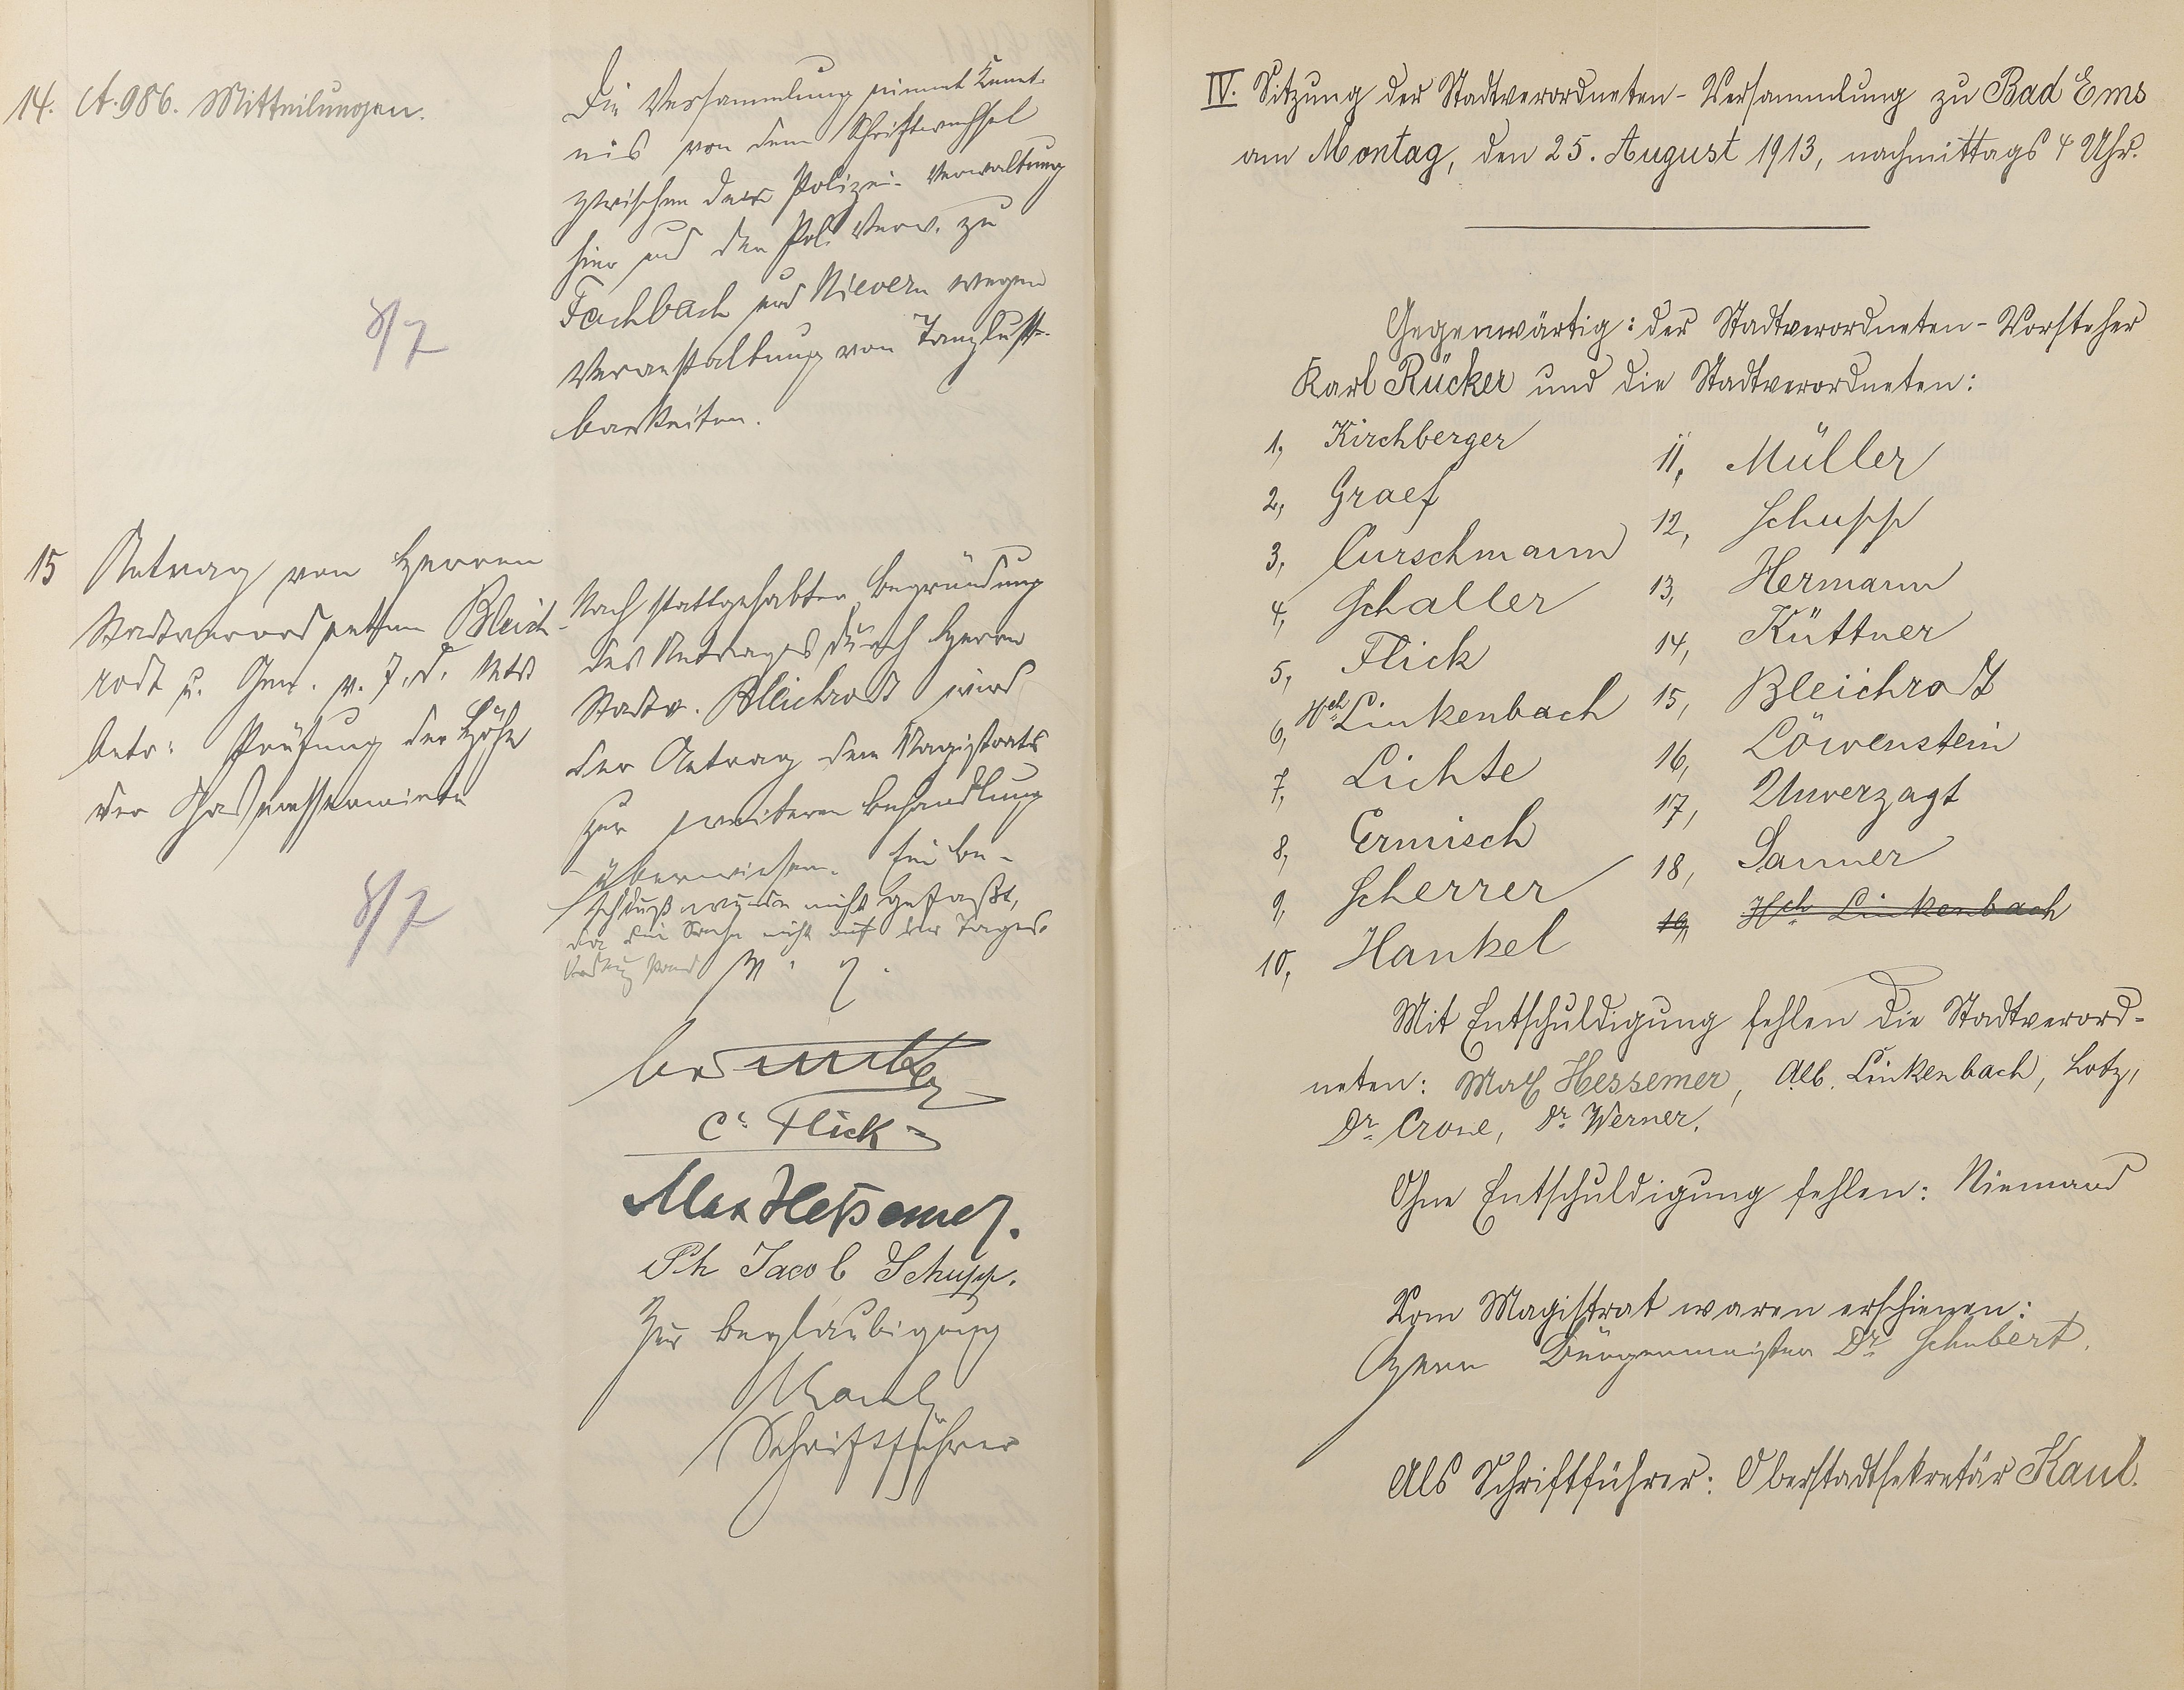 14. A. 986. Mitteilungen.
Die Versammlung nimmt Kennt-
nis von dem Schriftwechsel
zwischen der Polizei-Verwaltung
hier und den Pol. Verw. zu
Fachbach und Nievern wegen
Veranstaltung von Tanzlust-
barkeiten.
8/7
15 Antrag von Herren
Stadtverordneten Bleich-
rodt u. Gen. v. 7. d. Mts
betr: Prüfung der Höhe
der Gasmessermiete
8/7
Nach stattgehabter Begründung
des Antrages durch Herrn
Stadtv. Bleichrodt wird
der Antrag dem Magistrats
zur weiteren Behandlung
überwiesen. Ein Be-
schluß wurde nicht gefaßt,
da die Sache nicht auf der Tages-
ordnung stand
C. Flick
Max Heßemer.
Ph Jacob Schupp.
Zur Beglaubigung
Kaul
Schriftführer
IV. Sitzung der Stadtverordneten-Versammlung zu Bad Ems
am Montag, den 25. August 1913, nachmittags 4 Uhr.
Gegenwärtig: der Stadtverordneten-Vorsteher
Karl Rücker und die Stadtverordneten:
1, Kirchberger
2, Graef
3, Curschmann
4, Schaller
5, Flick
6, Hch Linkenbach
7, Lichte
8, Ermisch
9, Scherrer
10, Hankel
11, Müller
12, Schupp
13, Hermann
14, Küttner
15, Bleichrodt
16, Löwenstein
17, Unverzagt
18, Sanner
19, Hch Linkenbach
Mit Entschuldigung fehlen die Stadtverord-
neten: Max Hessemer, Alb. Linkenbach, Lotz,
Dr. Crone, Dr. Werner.
Ohne Entschuldigung fehlen: Niemand
Vom Magistrat waren erschienen:
Herr Bürgermeister Dr. Schubert.
Als Schriftführer: Oberstadtsekretär Kaul.